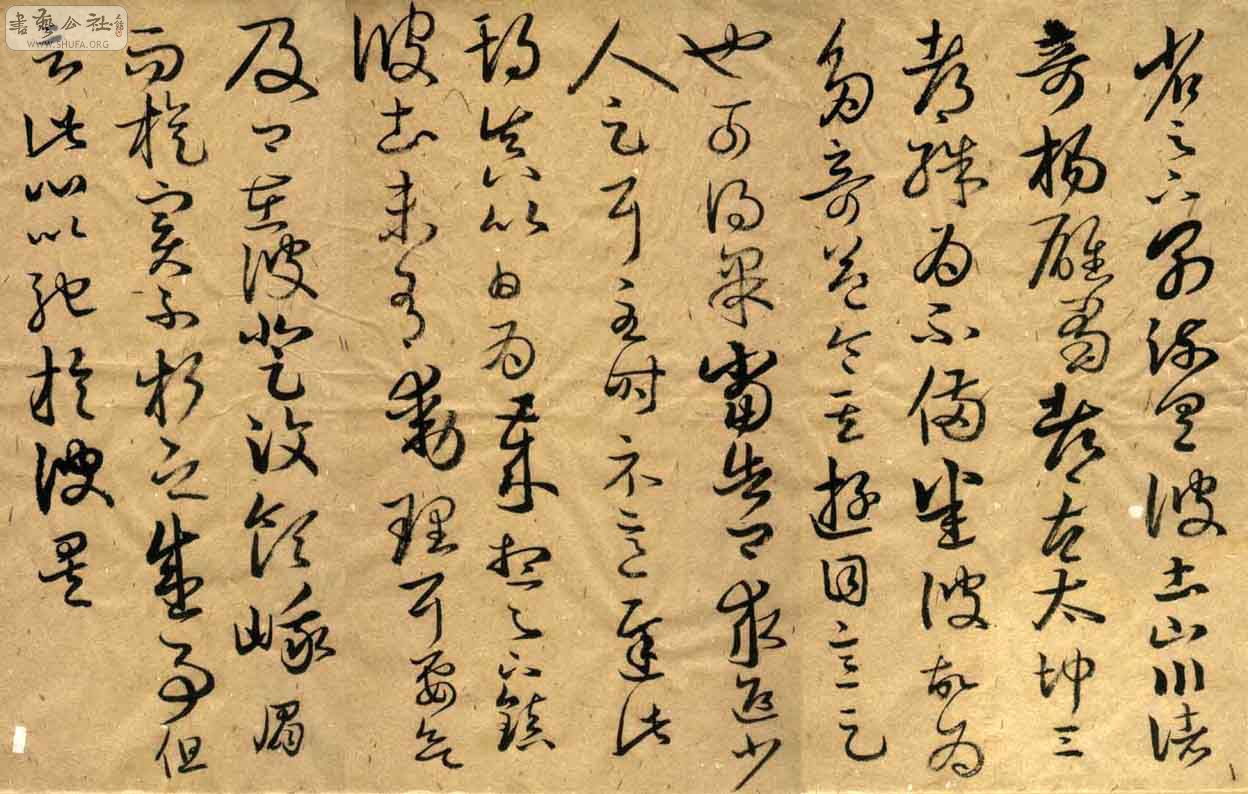 省足下別疏具彼土山川諸
奇楊雄蜀都左太沖三
都殊為不備悉彼故為
多奇益令其遊目意足
也可得果當告卿求迎少
人足耳至時示意遲此
期真以日為歲想足下鎮
彼土未有動理耳要欲
及卿在彼登汶領峨眉
而旋實不朽之盛事但
言此心以馳於彼矣
書藝公社
WWW.SHUFA.ORG